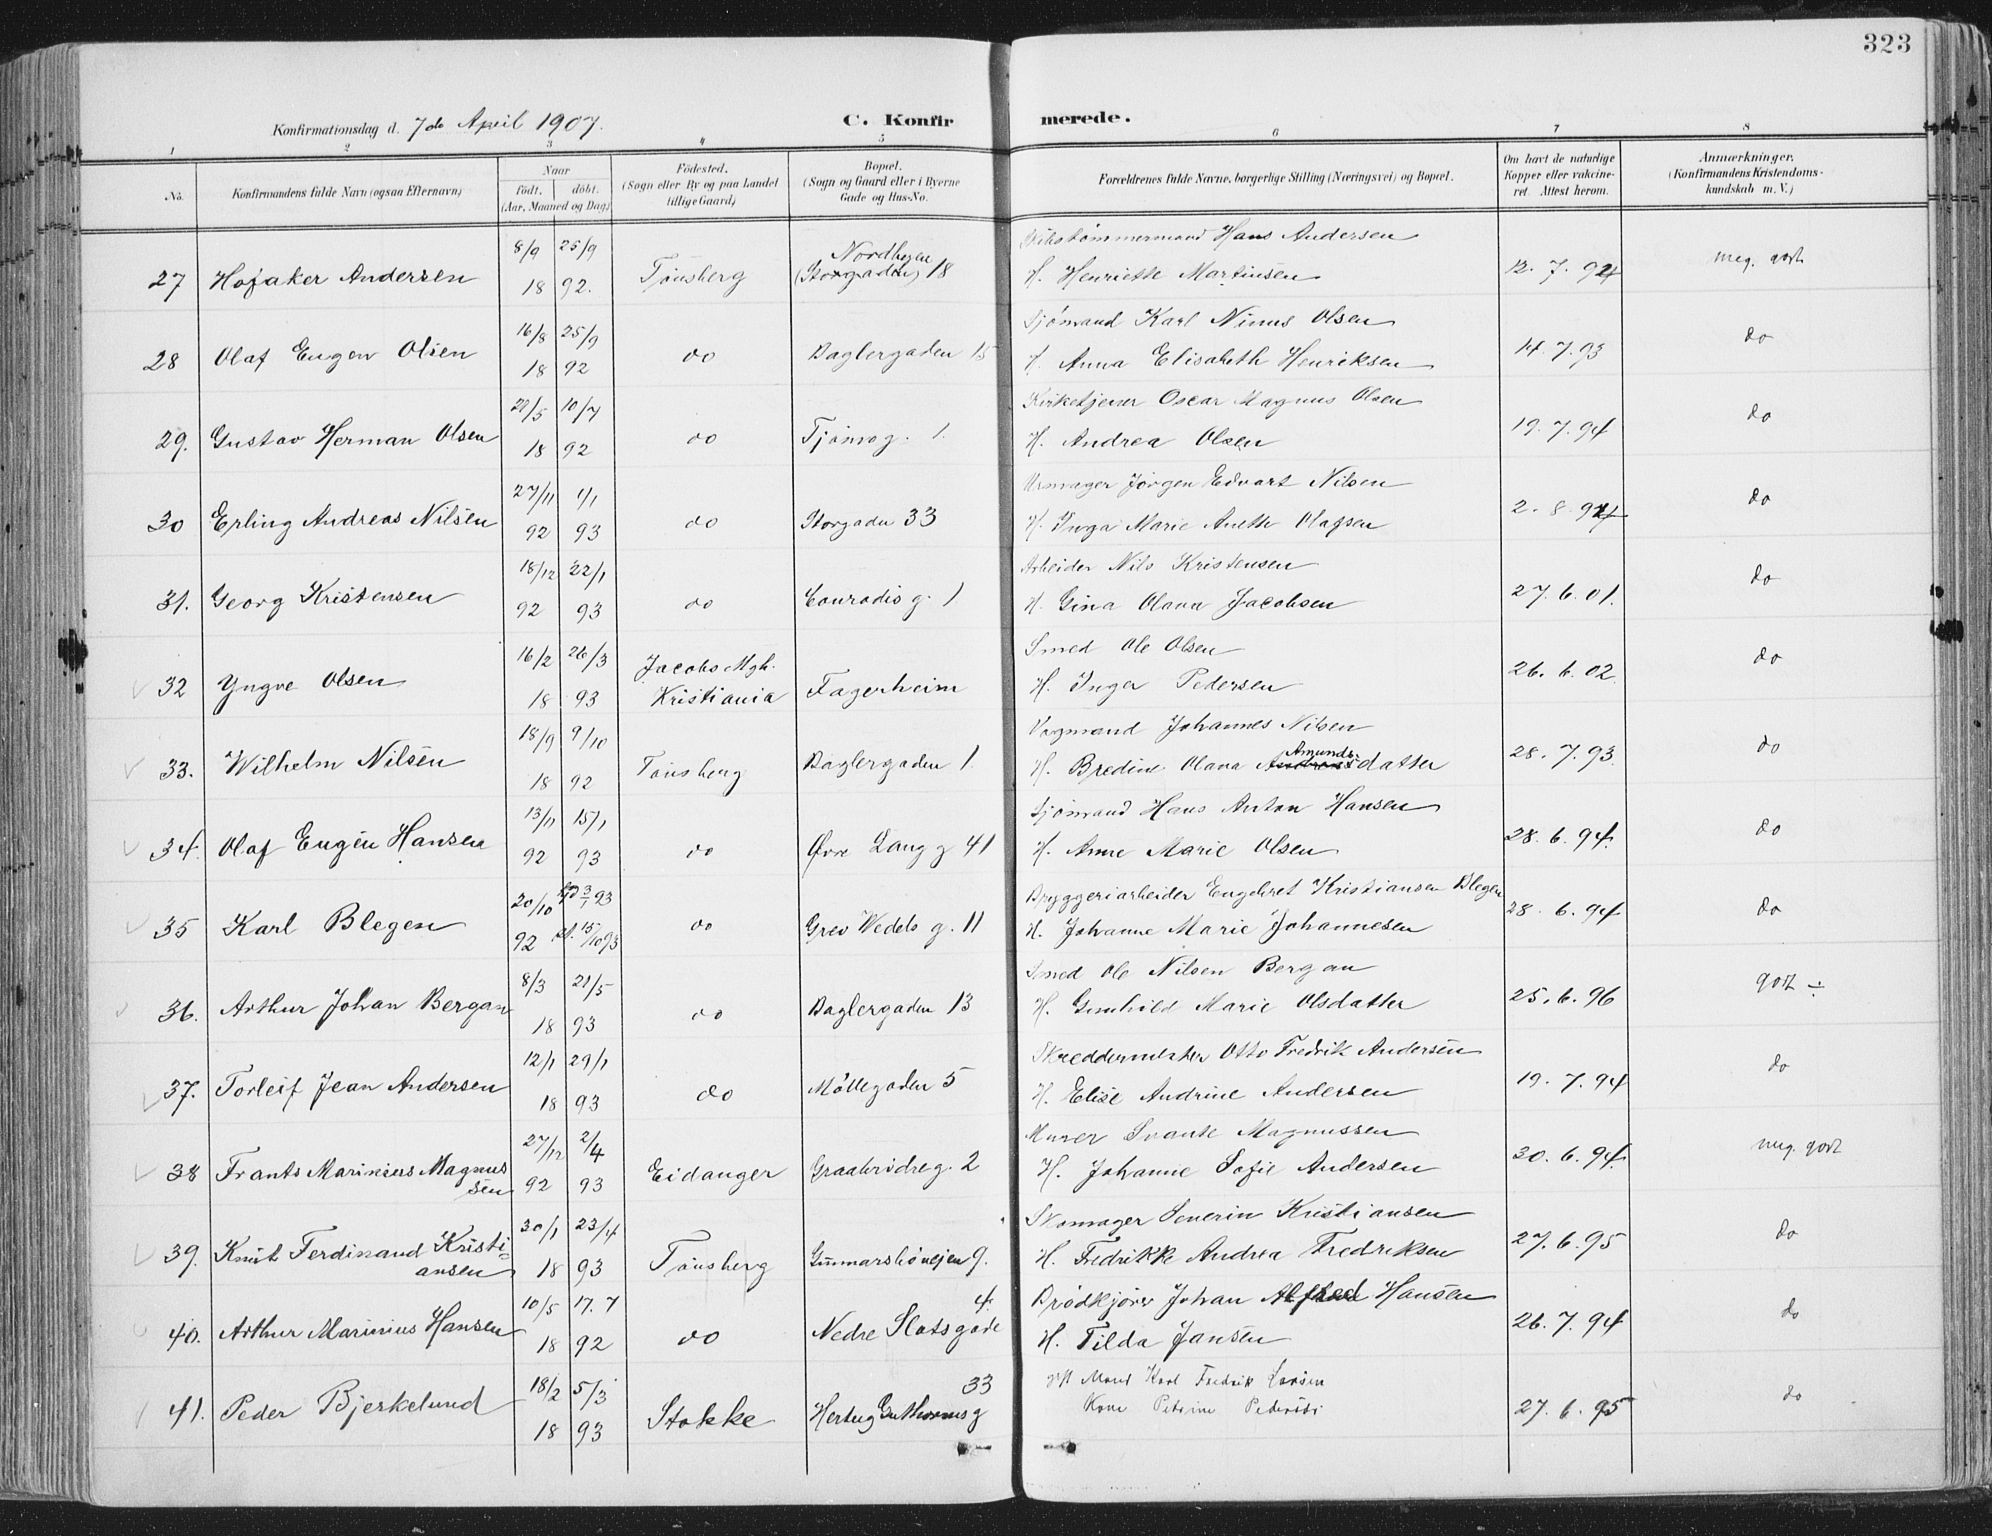 323
Konfirmationsdag d. 7de April 1907.
C. Konfirmerede.
1 2 3 4 5 6 7 8
No.
Konfirmandens fulde Navn (ogsaa Efternavn)
Naar
født. døbt.
(Aar, Maaned og Dag)
Fødested.
(Sogn eller By og paa Landet
tillige Gaard)
Bopæl.
(Sogn og Gaard eller i Byerne
Gade og Hus-No.
Forældrenes fulde Navne, borgerlige Stilling (Næringsvei) og Bopæl.
Om havt de naturlige
Kopper eller vakcine-
ret. Attest herom.
Anmærkninger.
(Konfirmandens Kristendoms-
kundskab m. V.)
8/9 25/9 Nordbyen Hans Andersen
27 Hofaker Andersen 18 92. Tönsberg (Storgaden) 18 H. Henriette Martinsen 12. 7. 94 meg. godt
16/8 25/9 Sjömand Karl Ninus Olsen
28 Olaf Eugen Olsen 18 92 do Baglergaden 15 H. Anna Elisabeth Henriksen 14. 7. 93 do
21/5 10/7 Kirketjener Oscar Magnus Olsen
29. Gustav Herman Olsen 18 92 do Tjömeg. 1. H. Andrea Olsen 19. 7. 94 do
27/11 1/1 Urmager Jörgen Edvart Nilsen
30 Erling Andreas Nilsen 92 93 do Storgaden 33 H. Inga Marie Anette Olafsen 2. 8. 94 do
18/12 22/1 Arbeider Nils Kristensen
31. Georg Kristensen 92 93 do Conradis g. 1 H. Gina Olava Jacobsen 27. 6. 01. do
16/2 26/3 Jacobs Mgh. Smed Ole Olsen
32 Yngve Olsen 18 93 Kristiania Fagerheim H. Inger Pedersen 26. 6. 02. do
18/9 9/10 Vognmand Johannes Nilsen
33. Wilhelm Nilsen 18 92 Tönsberg Baglergaden 1 H. Bredine Olava Amundsdatter 28. 7. 93. do
13/11 15/1 Sjömand Hans Anton Hansen
34. Olaf Eugen Hansen 92 93 do Øvre Lang g 41 H. Anne Marie Olsen 28. 6. 94. do
20/10 3/1 93 Bryggeriarbeider Engebret Kristiansen Blegen
35 Karl Blegen 92 15/10 93 do Grev Wedels g. 11 H. Johanne Marie Johannesen 28. 6. 94 do
8/3 21/5 Smed Ole Nilsen Bergan
36. Arthur Johan Bergan 18 93 do Baglergaden 13 H. Gunhild Marie Olsdatter 25. 6. 96 godt ÷
12/1 29/1 Skreddermester Otto Fredrik Andersen
37. Torleif Jean Andersen 18 93 do Möllegaden 5 H. Elise Andrine Andersen 19. 7. 94 do
27/12 2/4 Murer Svante Magnussen
38 Frants Marinius Magnus
sen 92 93 Eidanger Graabrödreg. 2 H. Johanne Sofie Andersen 30. 6. 94. meg. godt
30/1 23/4 Skomager Severin Kristiansen
39. Knut Ferdinand Kristi-
ansen 18 93 Tönsberg Gunnarsbövejen 9. H. Fredrikke Andrea Fredriksen 27. 6. 95 do
10/5 17. 7 4. Brödkjörer Johan Alfred Hansen
40. Arthur Marinius Hansen 18 92 do Nedre Slotsgade H. Tilda Jansen 26. 7. 94 do
18/2 5/3 33 Karl Fredrik Larsen
41. Peder Bjerkelund 18 93 Stokke Hertug Guthorms g Kone Petrine Pedersdt 27. 6. 95 do